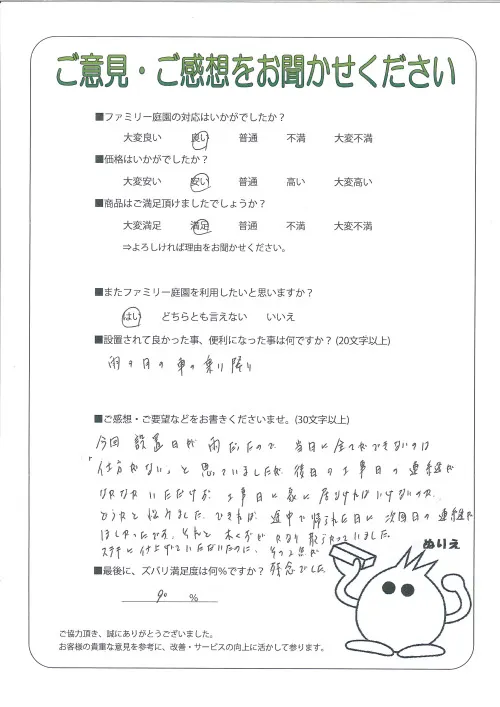 ご意見・ご感想をお聞かせください
■ファミリー庭園の対応はいかがでしたか？
大変良い 良い 普通 不満 大変不満
■価格はいかがでしたか？
大変安い 安い 普通 高い 大変高い
■商品はご満足頂けましたでしょうか？
大変満足 満足 普通 不満 大変不満
⇒よろしければ理由をお聞かせください。
■またファミリー庭園を利用したいと思いますか？
はい どちらとも言えない いいえ
■設置されて良かった事、便利になった事は何ですか？(20文字以上)
雨の日の車の乗り降り
■ご感想・ご要望などをお書きくださいませ。(30文字以上)
今回 設置日が雨だったので、当日に全てができないのは
「仕方がない」と思っていましたが、後日の工事日の連絡が
いただけず 工事日に家に居なければいけないのか
どうかと悩みました。できれば 途中で帰られた日に次回日の連絡が
ほしかったです。それと 木くずが かなり散らかっていました。
ステキに仕上げていただいたのに、その2点が
残念でした。
■最後に、ズバリ満足度は何％ですか？
90 ％
ぬりえ
ご協力頂き、誠にありがとうございました。
お客様の貴重な意見を参考に、改善・サービスの向上に活かして参ります。